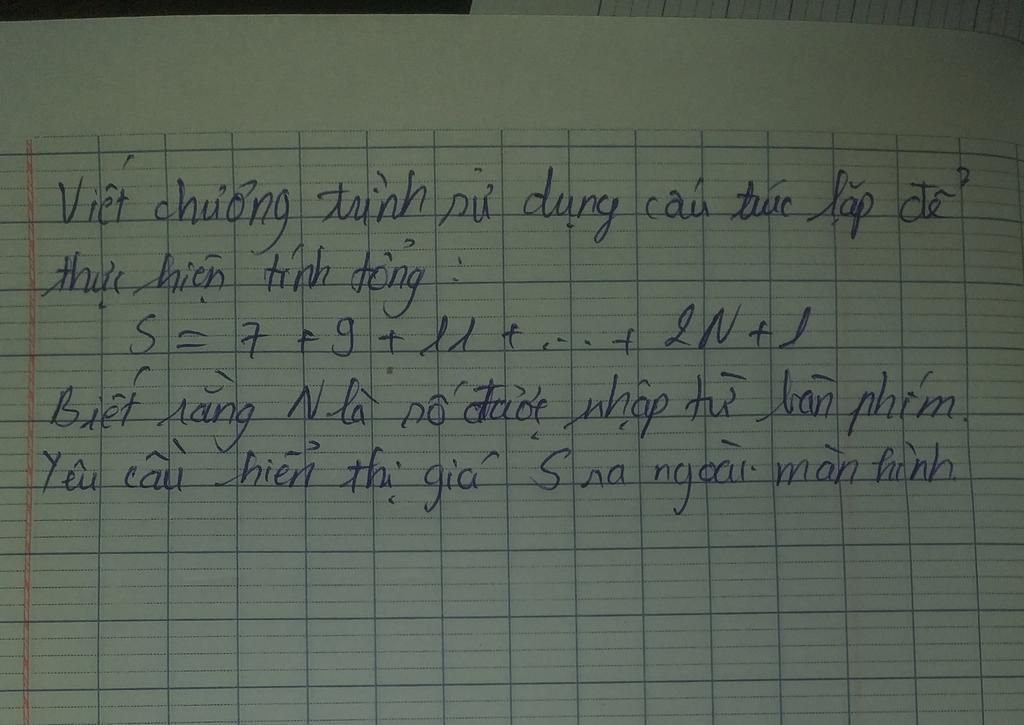 Viết chương trình sử dụng cấu trúc lặp để
thực hiện tính tổng :
S = 7 + 9 + 11 + ... + 2N + 1
Biết rằng N là số được nhập từ bàn phím.
Yêu cầu hiển thị giá S ra ngoài màn hình.